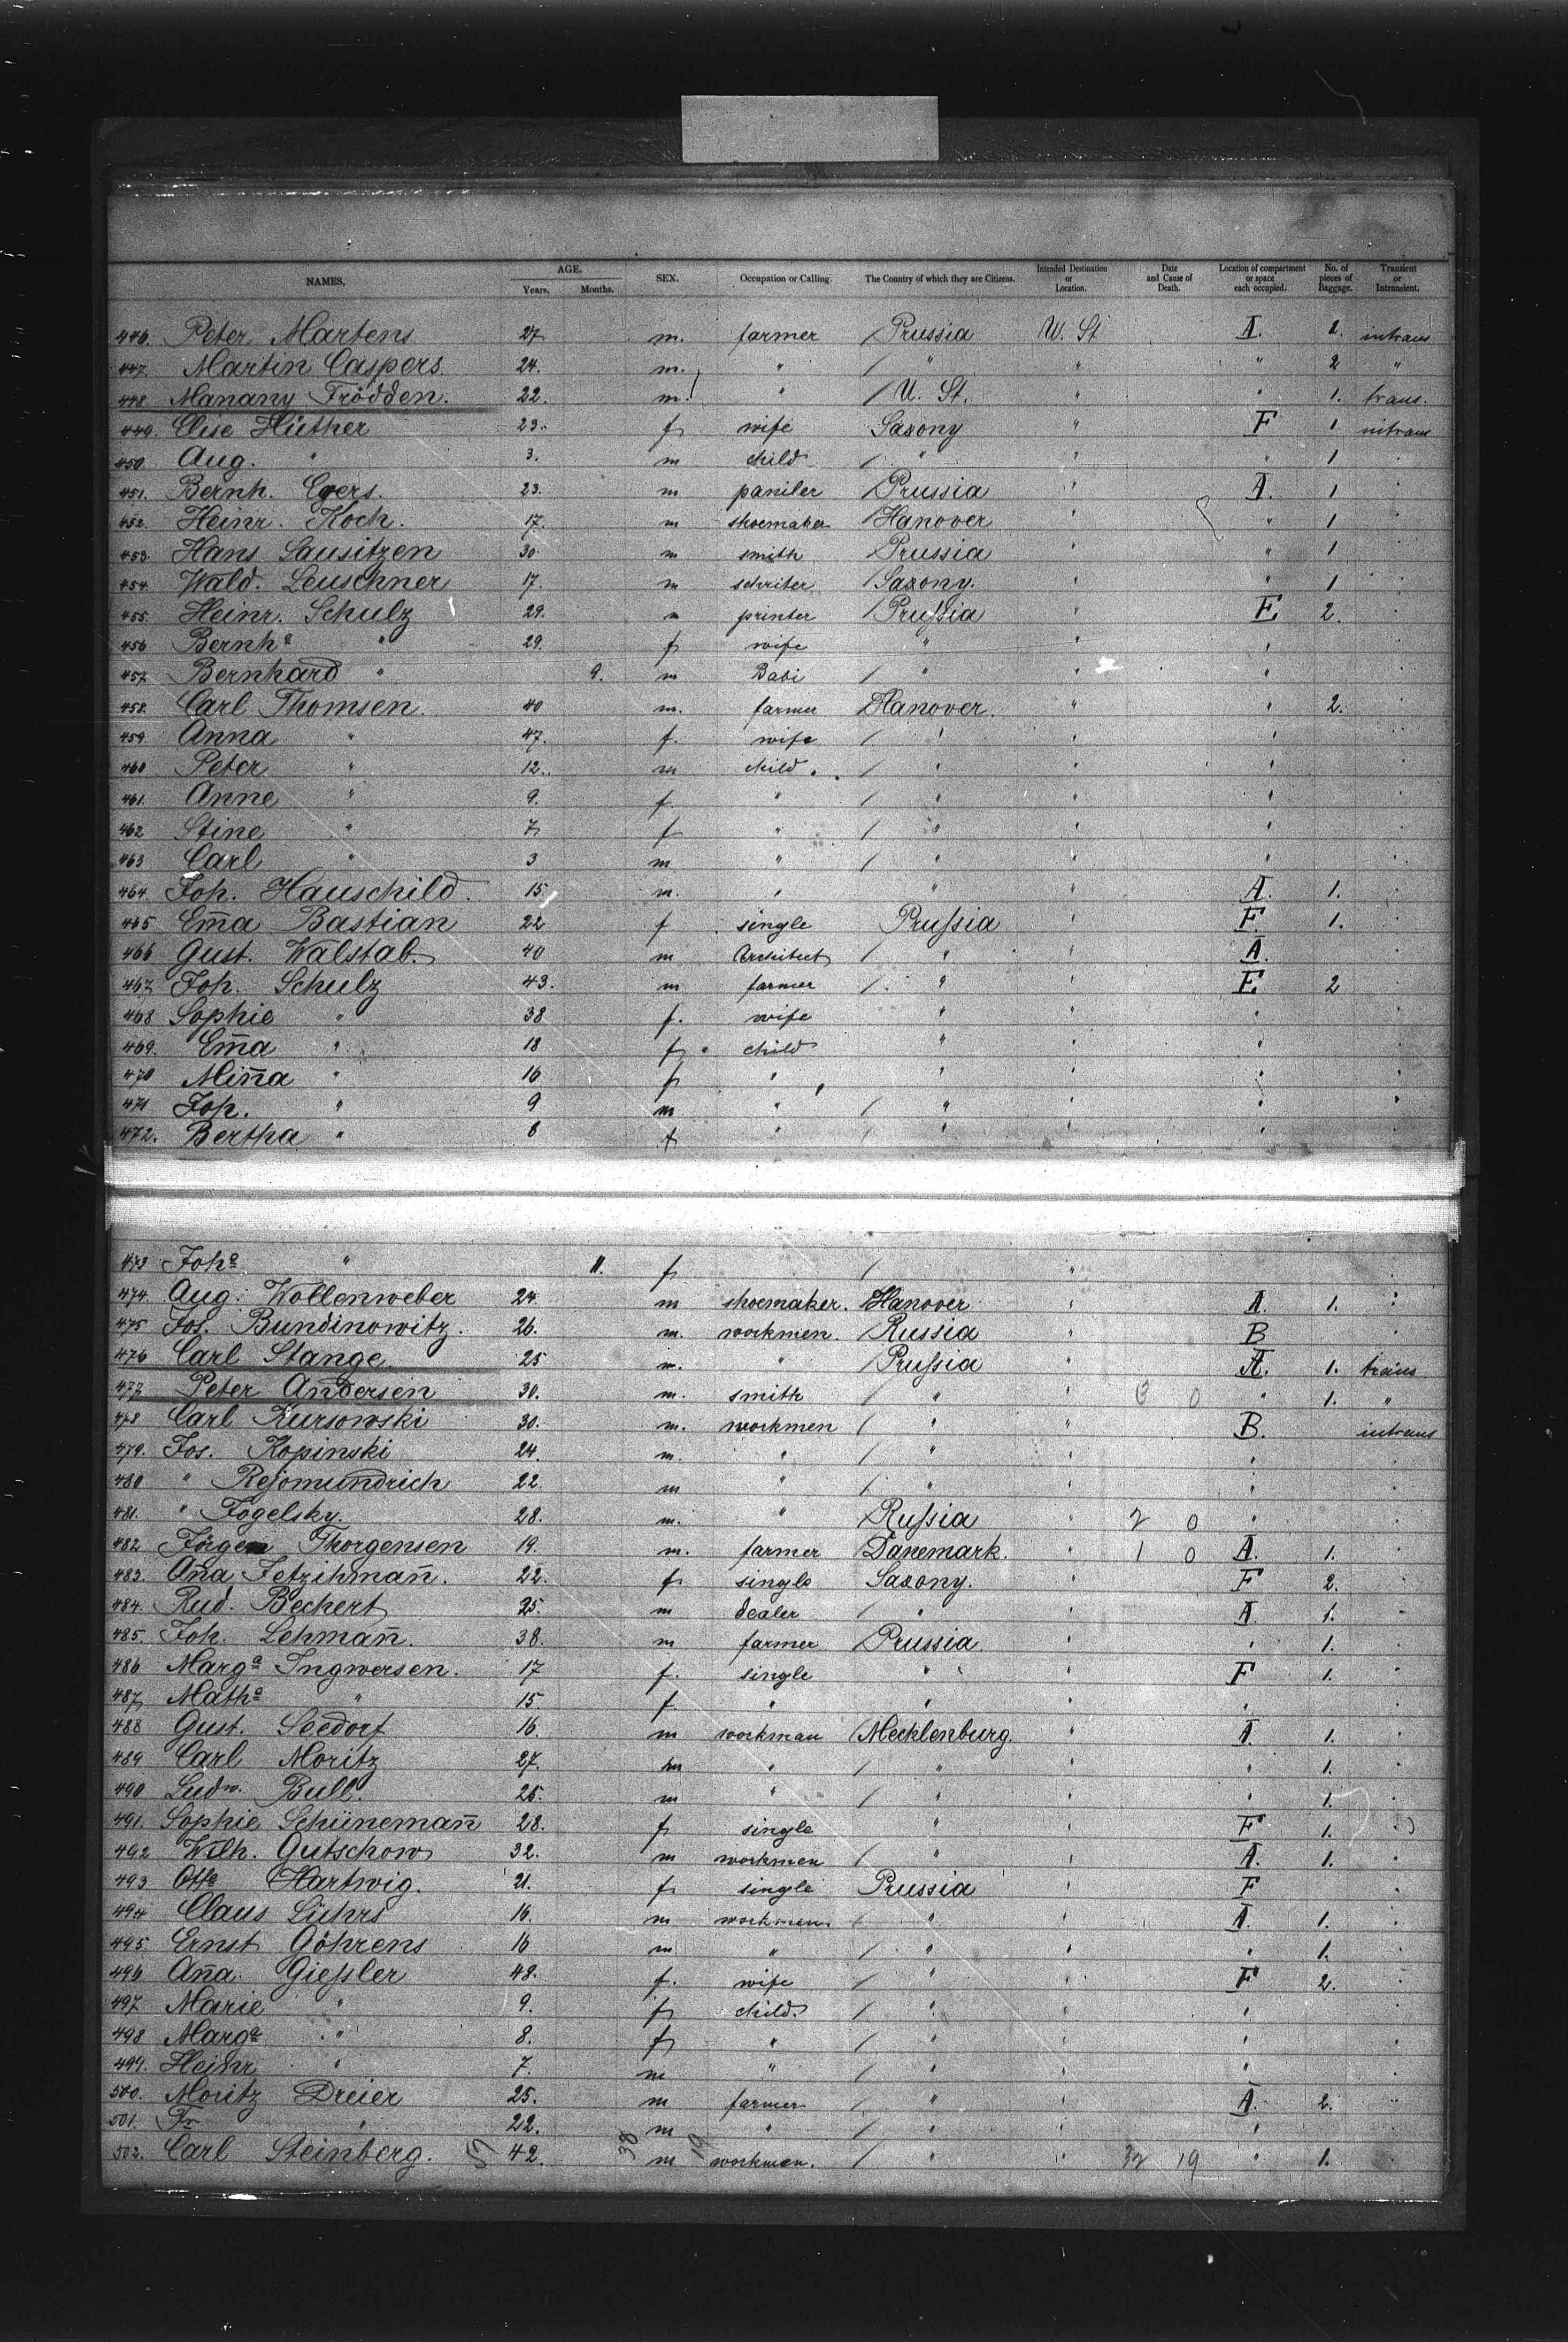 NAMES. AGE. Years. Months. SEX. Occupation or Calling. The Country of which they are Citizens. Intended Destination or Location. Date and Cause of Death. Location of compartment or space each occupied. No. of pieces of Baggage. Transient or Intransient.
446. Peter Martens 27 m. farmer / Prussia U. St A. 2. intrans
447. Martin Caspers. 24. m. " / " " " 2 "
448. Manany Frödden. 22. m. " / U. St. " " 1. trans.
449. Elise Hüther 23. f wife Saxony " F 1 intrans
450. Aug. " 3. m child / " " " 1 "
451. Bernh. Egers. 23. m / Prussia " A. 1 "
452. Heinr. Koch. 17. m shoemaker / Hanover " " 1 "
453. Hans Lausitzen 30. m smith / Prussia " " 1 "
454. Wald. Leuschner 17. m schriter / Saxony. " " 1 "
455. Heinr. Schulz 29. m printer / Prußia " E 2. "
456 Bernhª " 29. f wife " " " "
457. Bernhard " 9. m Babi / " " " "
458. Carl Thomsen. 40 m. farmer / Hanover. " " 2. "
459. Anna " 47. f. wife / " " " "
460 Peter " 12. m child. / " " " "
461. Anne " 9. f. " / " " " "
462 Stine " 7 f " / " " " "
463 Carl " 3 m " / " " " "
464. Joh. Hauschild. 15 m. " " " A. 1. "
465 Em̄a Bastian 22 f single Prußia " F. 1. "
466 Gust. Walstab. 40 m Architect / " " A. "
467. Joh. Schulz 43. m farmer / " " E 2 "
468 Sophie " 38 f. wife " " " "
469. Em̄a " 18 f child " " " "
470 Min̄a " 16 f " " " " "
471 Joh. " 9 m " / " " " "
472. Bertha " 6 f " / " " " "
473 Johª " 11. f / " "
474. Aug. Wollenweber 24. m shoemaker. / Hanover " A. 1. "
475 Jos. Bundinowitz. 26. m. workmen. / Russia " B "
476 Carl Stange. 25 m. " / Prußia " A. 1. trans
477 Peter Andersen 30. m. smith / " " 3 0 " 1. "
478 Carl Kursowski 30. m. workmen / " " B. intrans
479. Jos. Kopinski 24. m. " / " " "
480 " Rejomundrich 22. m " / " " "
481. " Fogelsky. 28. m. " / Rußia " 2 0 " "
482 Jörgen Thorgensen 19. m. farmer / Dänemark. " 1 0 A. 1. "
483. An̄a Fetzihman̄. 22. f single Saxony. " F 2. "
484. Rud. Bechert 25. m dealer / " " A. 1. "
485. Joh. Lehman̄. 38. m farmer / Prussia " " 1. "
486 Margª Ingwersen. 17 f. single " " F 1. "
487 Mathª " 15 f. " " " " "
488 Gust. Seedorf 16. m workman / Mecklenburg. " A. 1. "
489 Carl Moritz 27. m " / " " " 1. "
490 Ludw. Bull. 25. m " / " " " 1. "
491. Sophie Schüneman̄ 28. f single " " F 1. "
492 Wilh. Gutschow 32. m workmen / " " A. 1. "
493 Ottª Hartwig. 21. f single Prussia " F "
494 Claus Lührs 16. m workmen. / " " A. 1. "
495. Ernst Göhrens 16 m " / " " " 1. "
496 An̄a Gießler 48. f. wife / " " F 2. "
497. Marie " 9. f child. / " " " "
498 Margª " 8. f " / " " " "
499. Heinr " 7. m " / " " " "
500. Moritz Dreier 25. m farmer / " " A. 2. "
501. Fr " 22. m " / " " " "
502. Carl Steinberg. 57 42. 38 m 19 workmen. / " " 32 19 " 1. "